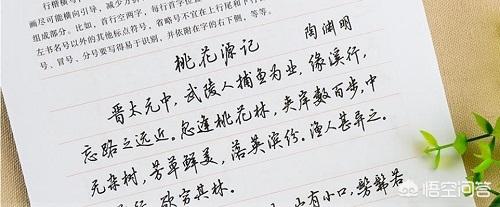 行楷横写
画尽可能横向引导,减少方折
组成部分。比如,首行空两字,每行首字
左书名号以外的其他标点符号,省略号不宜在上行尾和下行
冒号、分号要写得易于识别,并依附在字的右下侧,等等。
桃花源记 陶渊明
晋太元中,武陵人捕鱼为业,缘溪行,
忘路之远近。忽逢桃花林,夹岸数百步,中
无杂树,芳草鲜美,落英缤纷。渔人甚异之。
行,欲穷其林。
山有小口,髣髴若
悟空问答